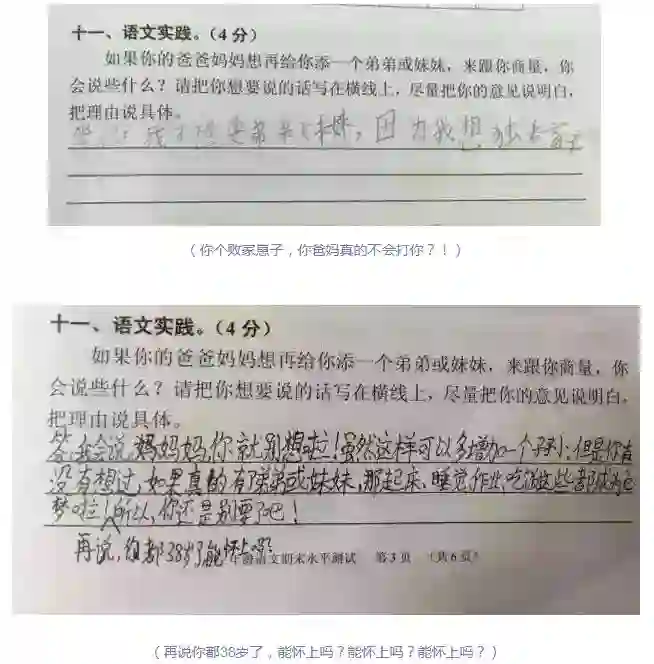 十一、语文实践。（4分）
如果你的爸爸妈妈想再给你添一个弟弟或妹妹，来跟你商量，你
会说些什么？请把你想要说的话写在横线上，尽量把你的意见说明白，
把理由说具体。
我不想要弟弟 妹妹，因为我想独占
（你个败家息子，你爸妈真的不会打你？！）
十一、语文实践。（4分）
如果你的爸爸妈妈想再给你添一个弟弟或妹妹，来跟你商量，你
会说些什么？请把你想要说的话写在横线上，尽量把你的意见说明白，
把理由说具体。
答：我会说，妈妈妈，你就别想啦！虽然这样可以多增加一个孩小：但是你有
没有想过，如果真的有弟弟或妹妹，那起床、睡觉作业、吃饭这些都成为
梦啦！所以，你还是别要了吧！
再说，你都38岁了能怀上吗？
年级语文期末水平测试 第3页 （共6页）
（再说你都38岁了，能怀上吗？能怀上吗？能怀上吗？）